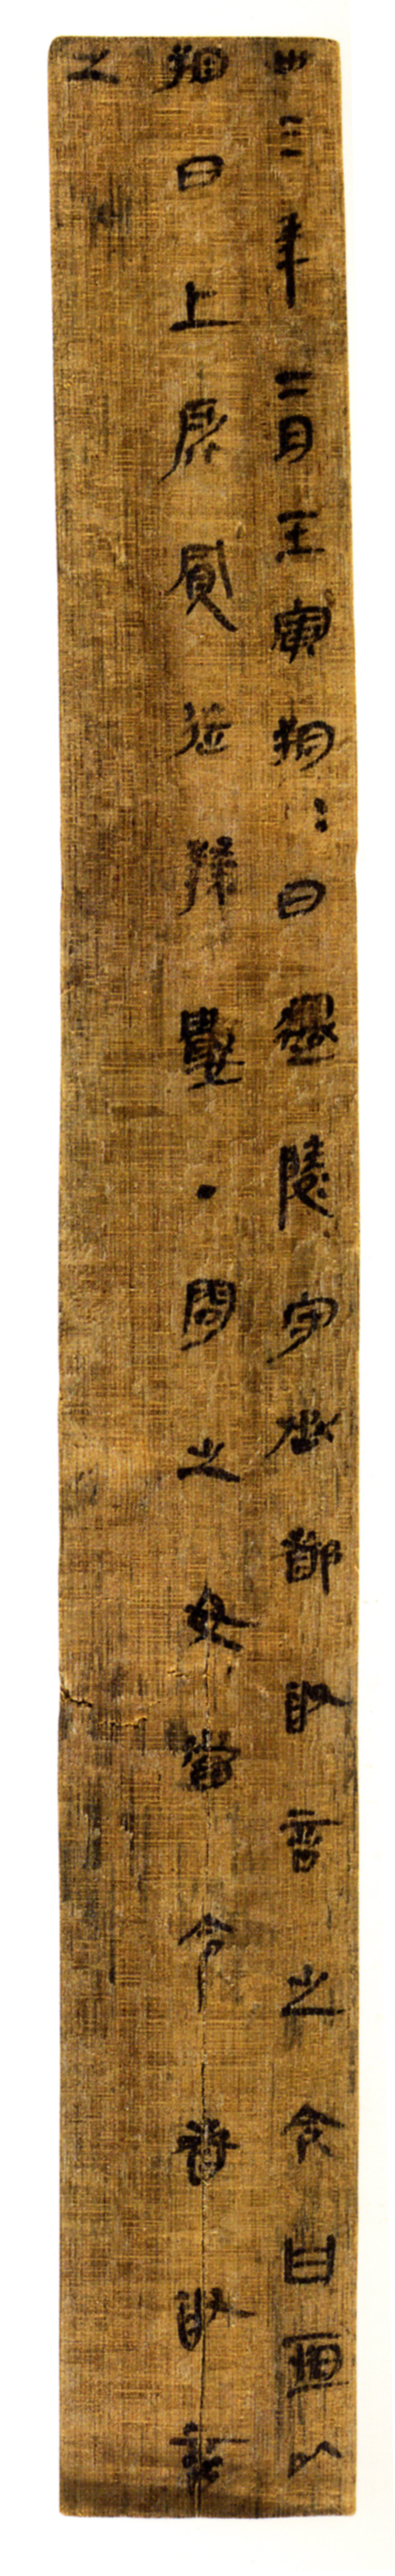 卅三年二月壬寅朔=日遷陵守丞都敢言之令曰恒以
朔日上所買徒隸數·問之毋當令者敢言
之